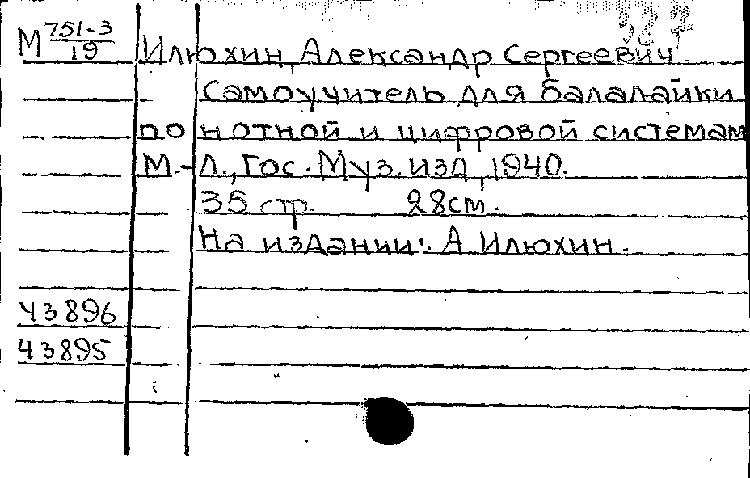 М 751-3/19 Илюхин, Александр Сергеевич
Самоучитель для балалайки
по нотной и цифровой системам
М.-Л., Гос. Муз. изд, 1940.
35 стр. 28см.
На издании: А. Илюхин.
43896
43895